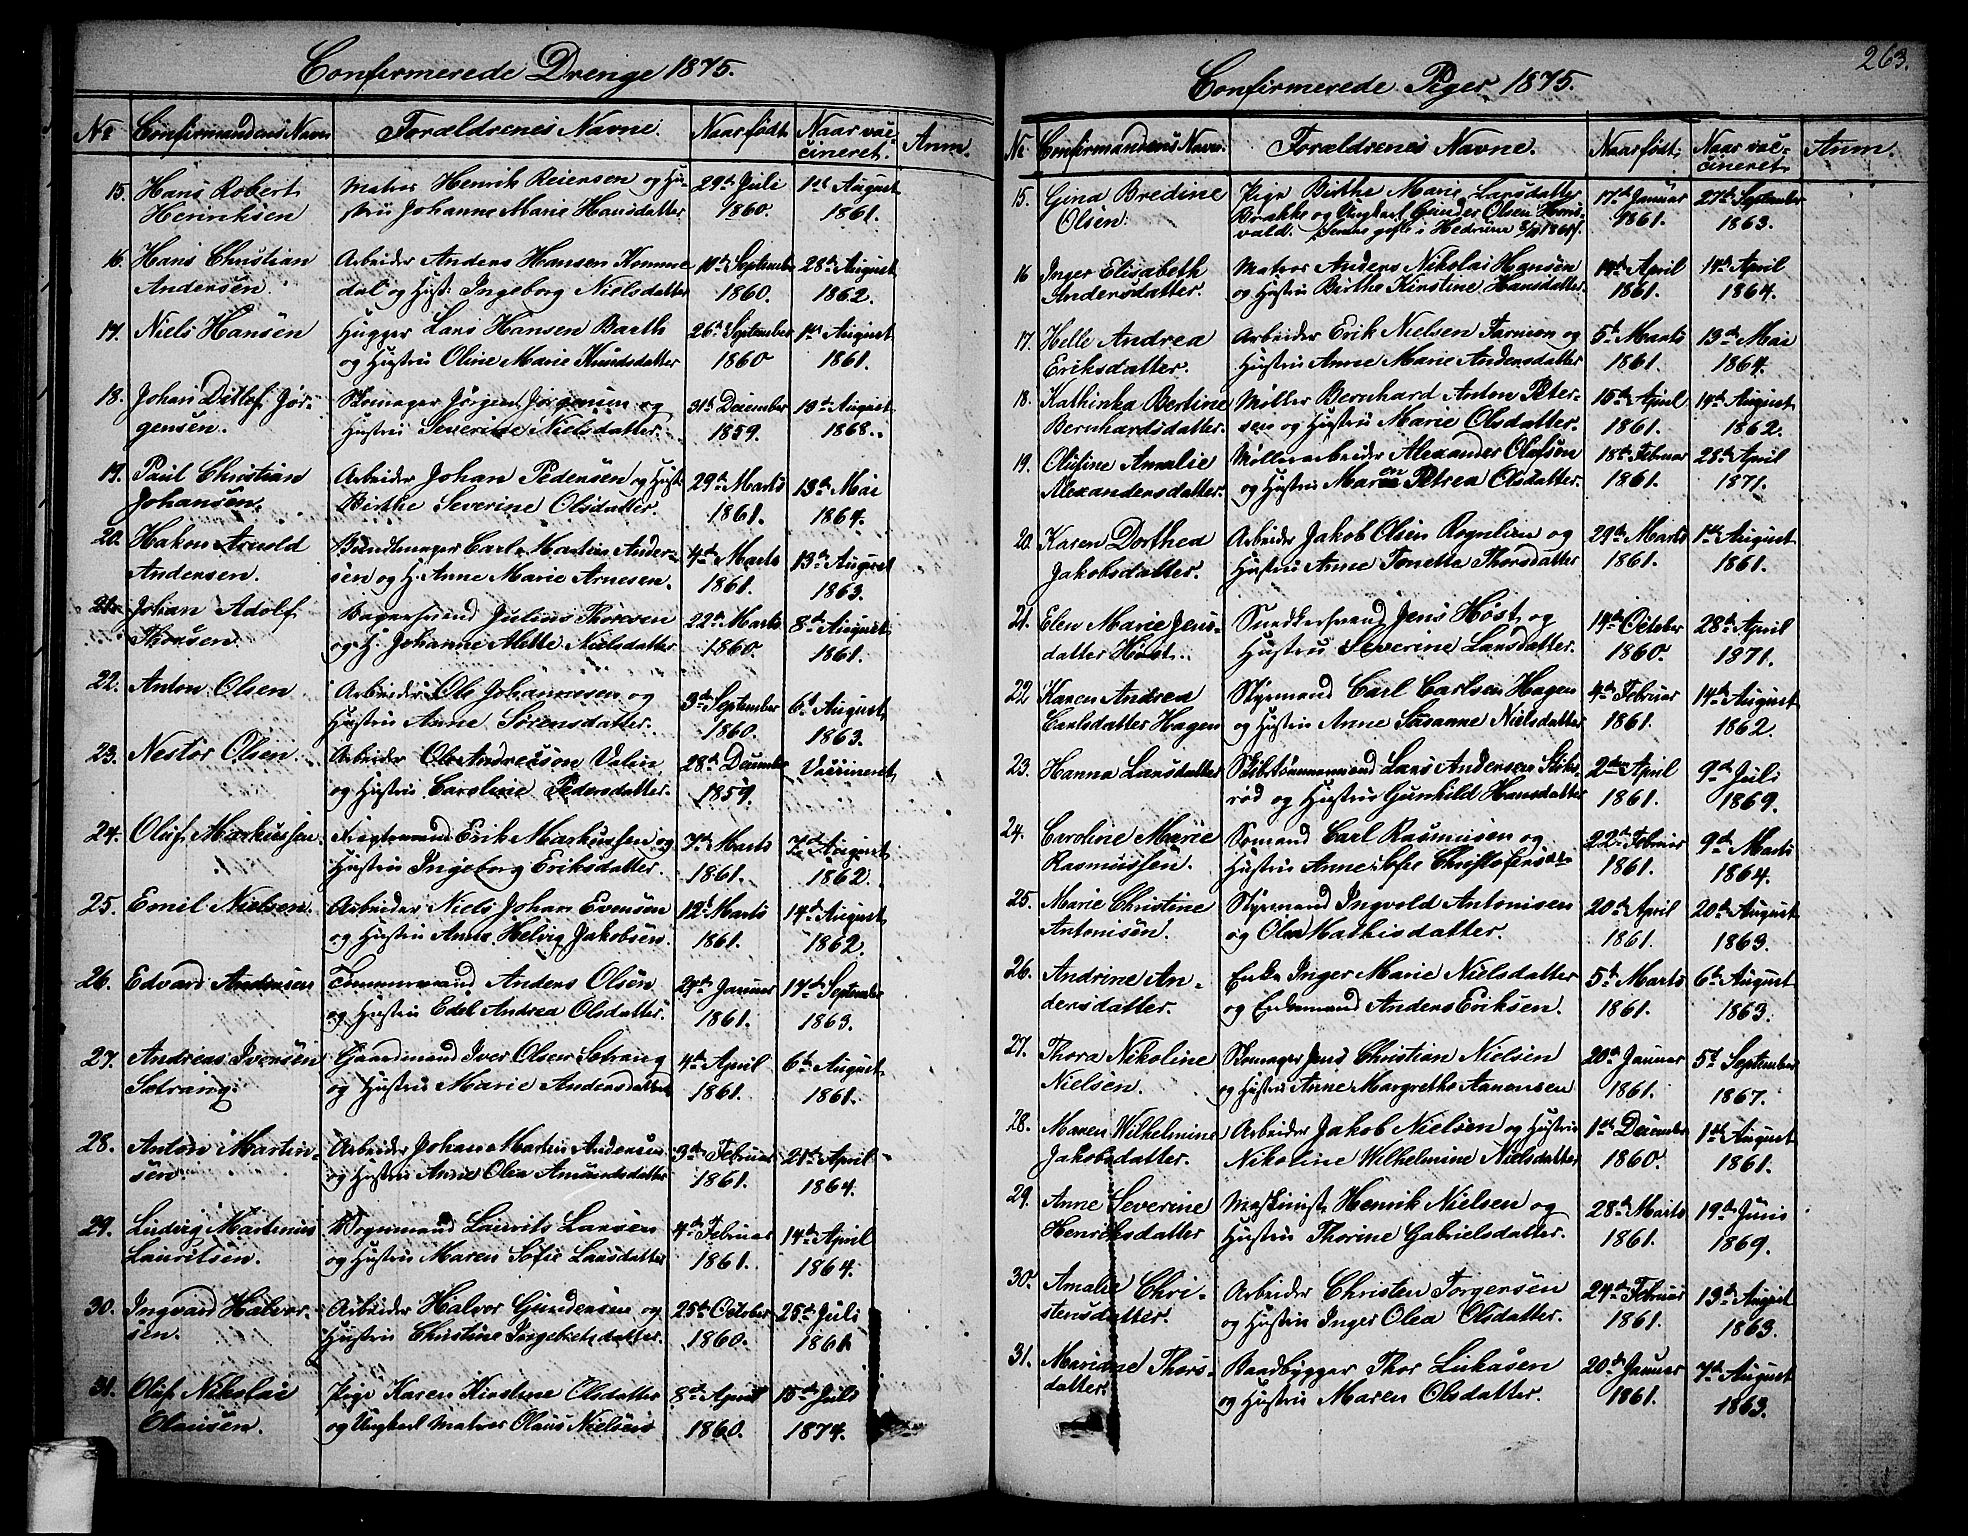 Confirmerede Drenge 1875.
No Confirmandens Navn Forældrenes Navne. Naar født. Naar vac-
cineret. Anm.
15. Hans Robert Matros Henrik Reiersen og Hu- 29de Juli 1ste August
Henriksen stru Johanne Marie Hansdatter 1860. 1861.
16. Hans Christian Arbeider Anders Hansen Komme 10de September 28de August
Andersen. dal og Hust. Ingeborg Nielsdatter 1860. 1862.
17. Niels Hansen Hugger Lars Hansen Barth 26de September 1ste August
og Hustru Oline Marie Knudsdatter 1860 1861.
18. Johan Ditlef Jør- Skomager Jørgen Jørgensen og 31te December 13de August
gensen. Hustru Severine Nielsdatter. 1859. 1868.
19. Paul Christian Arbeider Johan Pedersen og Hust. 29de Marts 13de Mai
Johansen. Birthe Severine Olsdatter. 1861. 1864.
20. Hakon Arnold Bundtmager Carl Martin Ander- 4de Marts 13de August
Andersen. sen og H. Anne Marie Arnesen. 1861. 1863.
21. Johan Adolf Bagersvend Julius Thoresen 22de Marts 8de August
Thorsen. og H. Johanne Alette Nielsdatter 1860. 1861.
22. Anton Olsen Arbeider Ole Johannesen og 3de September 6te August
Hustru Anne Sørensdatter. 1860. 1863.
23. Nestor Olsen. Arbeider Ole Andreeson Valin 28de December Vaccineret
og Hustru Caroline Pedersdatter. 1859.
24. Oluf Markussen Erik Markussen og 7de Marts 7de August
Hustru Ingeborg Eriksdatter. 1861. 1862.
25. Emil Nielsen. Arbeider Niels Johan Evensen 12te Marts 14de August
og Hustru Anne Helvig Jakobsen. 1861. 1862.
26. Edvard Andersen Tømmermand Anders Olsen 27de Januar 17de September
og Hustru Edel Andrea Olsdatter. 1861. 1863.
27. Andreas Iversen Gaardmand Iver Olsen Sotrang 4de April 6te August
Sotrang. og Hustru Marie Andersdatter 1861. 1861.
28. Anton Martin- Arbeider Johan Martin Andersen 9de Februar 21de April
sen. og Hustru Anne Olea Amundsdatter 1861. 1864.
29. Ludvig Martinus Laurits Larsen 4de Februar 14de April
Lauritsen. og Hustru Maren Sofie Larsdatter 1861. 1864.
30. Ingvard Halvor- Arbeider Halvor Gundersen og 25de October 25de Juli
sen. Hustru Christine Ingebretsdatter. 1860. 1861
31. Oluf Nikolai Pige Karen Kirstine Olsdatter 8de April 15de Juli
Olausen. og Ungkarl Matros Olaus Nielsen 1860. 1874.
263.
Confirmerede Piger 1875.
No Confirmandens Navn. Forældrenes Navne. Naar født. Naar vac-
cineret. Anm.
15. Gina Bredine Pige Birthe Marie Larsdatter 17de Januar 27de September
Olsen. Brække og Ungkarl Gunder Olsen Horris- 1861. 1863.
vald. Senere gifte i Hedrum
16 Inger Elisabeth Matros Anders Nikolai Hansen 14de April 14de April
Andersdatter. og Hustru Birthe Kirstine Hansdatter. 1861. 1864.
17. Helle Andrea Arbeider Erik Nielsen Farmen og 5te Marts 13de Mai
Eriksdatter. Hustru Anne Marie Andersdatter 1861. 1864.
18. Kathinka Bertine Møller Bernhard Anton Peter- 15de April 14de August
Bernhardsdatter. sen og Hustru Marie Olsdatter. 1861. 1862.
19. Olufine Amalie Møllerarbeider Alexander Olafsen 18de Februar 28de April
Alexandersdatter. og Hustru Maren Petrea Olsdatter. 1861. 1871.
20. Karen Dorthea Arbeider Jakob Olsen Rognlien og 29de Marts 1ste August
Jakobsdatter. Hustru Anne Tonette Thorsdatter 1861. 1861.
21. Elen Marie Jens- Snedkersvend Jens Høst og 14de October 28de April
datter Høst. Hustru Severine Larsdatter. 1860. 1871.
22 Karen Andrea Styrmand Carl Carlsen Hagen 4de Februar 14de August
Carlsdatter Hagen og Hustru Anne Susanne Nielsdatter 1861. 1862.
23. Hanna Larsdatter Skibstømmermand Lars Andersen Sticks- 2den April 9de Juli
rød og Hustru Gunhild Hansdatter 1861. 1869.
24. Caroline Marie Sømand Carl Rasmusen og 22de Februar 9de Marts
Rasmussen. Hustru Anne Sofie Christofersd. 1861. 1864.
25. Marie Christine Styrmand Ingvold Antonisen 20de April 20de August
Antonisen. og Olea Mathisdatter. 1861. 1863.
26. Andrine An- Enke Inger Marie Nielsdatter 5te Marts 6te August
dersdatter. og Enkemand Anders Eriksen. 1861. 1863.
27. Thora Nikoline Skomager Jens Christian Nielsen 20de Januar 5te September
Nielsen. og Hustru Anne Margrethe Aanonsen 1861. 1867.
28. Maren Wilhelmine Arbeider Jakob Nielsen og Hustru 1ste December 1ste August
Jakobsdatter. Nikoline Wilhelmine Nielsdatter 1860. 1861.
29. Anne Severine Maskinist Henrik Nielsen og 28de Marts 19de Juni
Henriksdatter Hustru Thorine Gabrielsdatter. 1861. 1869.
30. Amalie Chri- Arbeider Christen Torgersen 24de Februar 13de August
stensdatter. og Hustru Inger Olea Olsdatter. 1861. 1863.
31. Mariane Thors- Baadbygger Thor Lukasen 20de Januar 7de August
datter. og Hustru Maren Olsdatter. 1861. 1863.